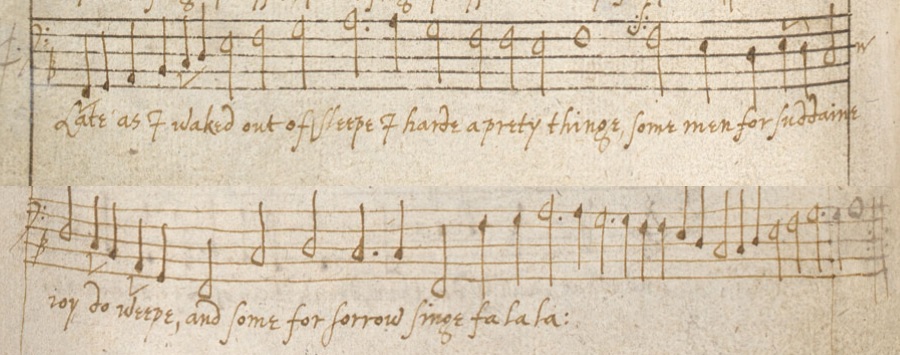 Late as I waked out of sleepe I harde a prety thinge, some men for suddaine
ioy do weepe, and some for sorrow singe fa la la: